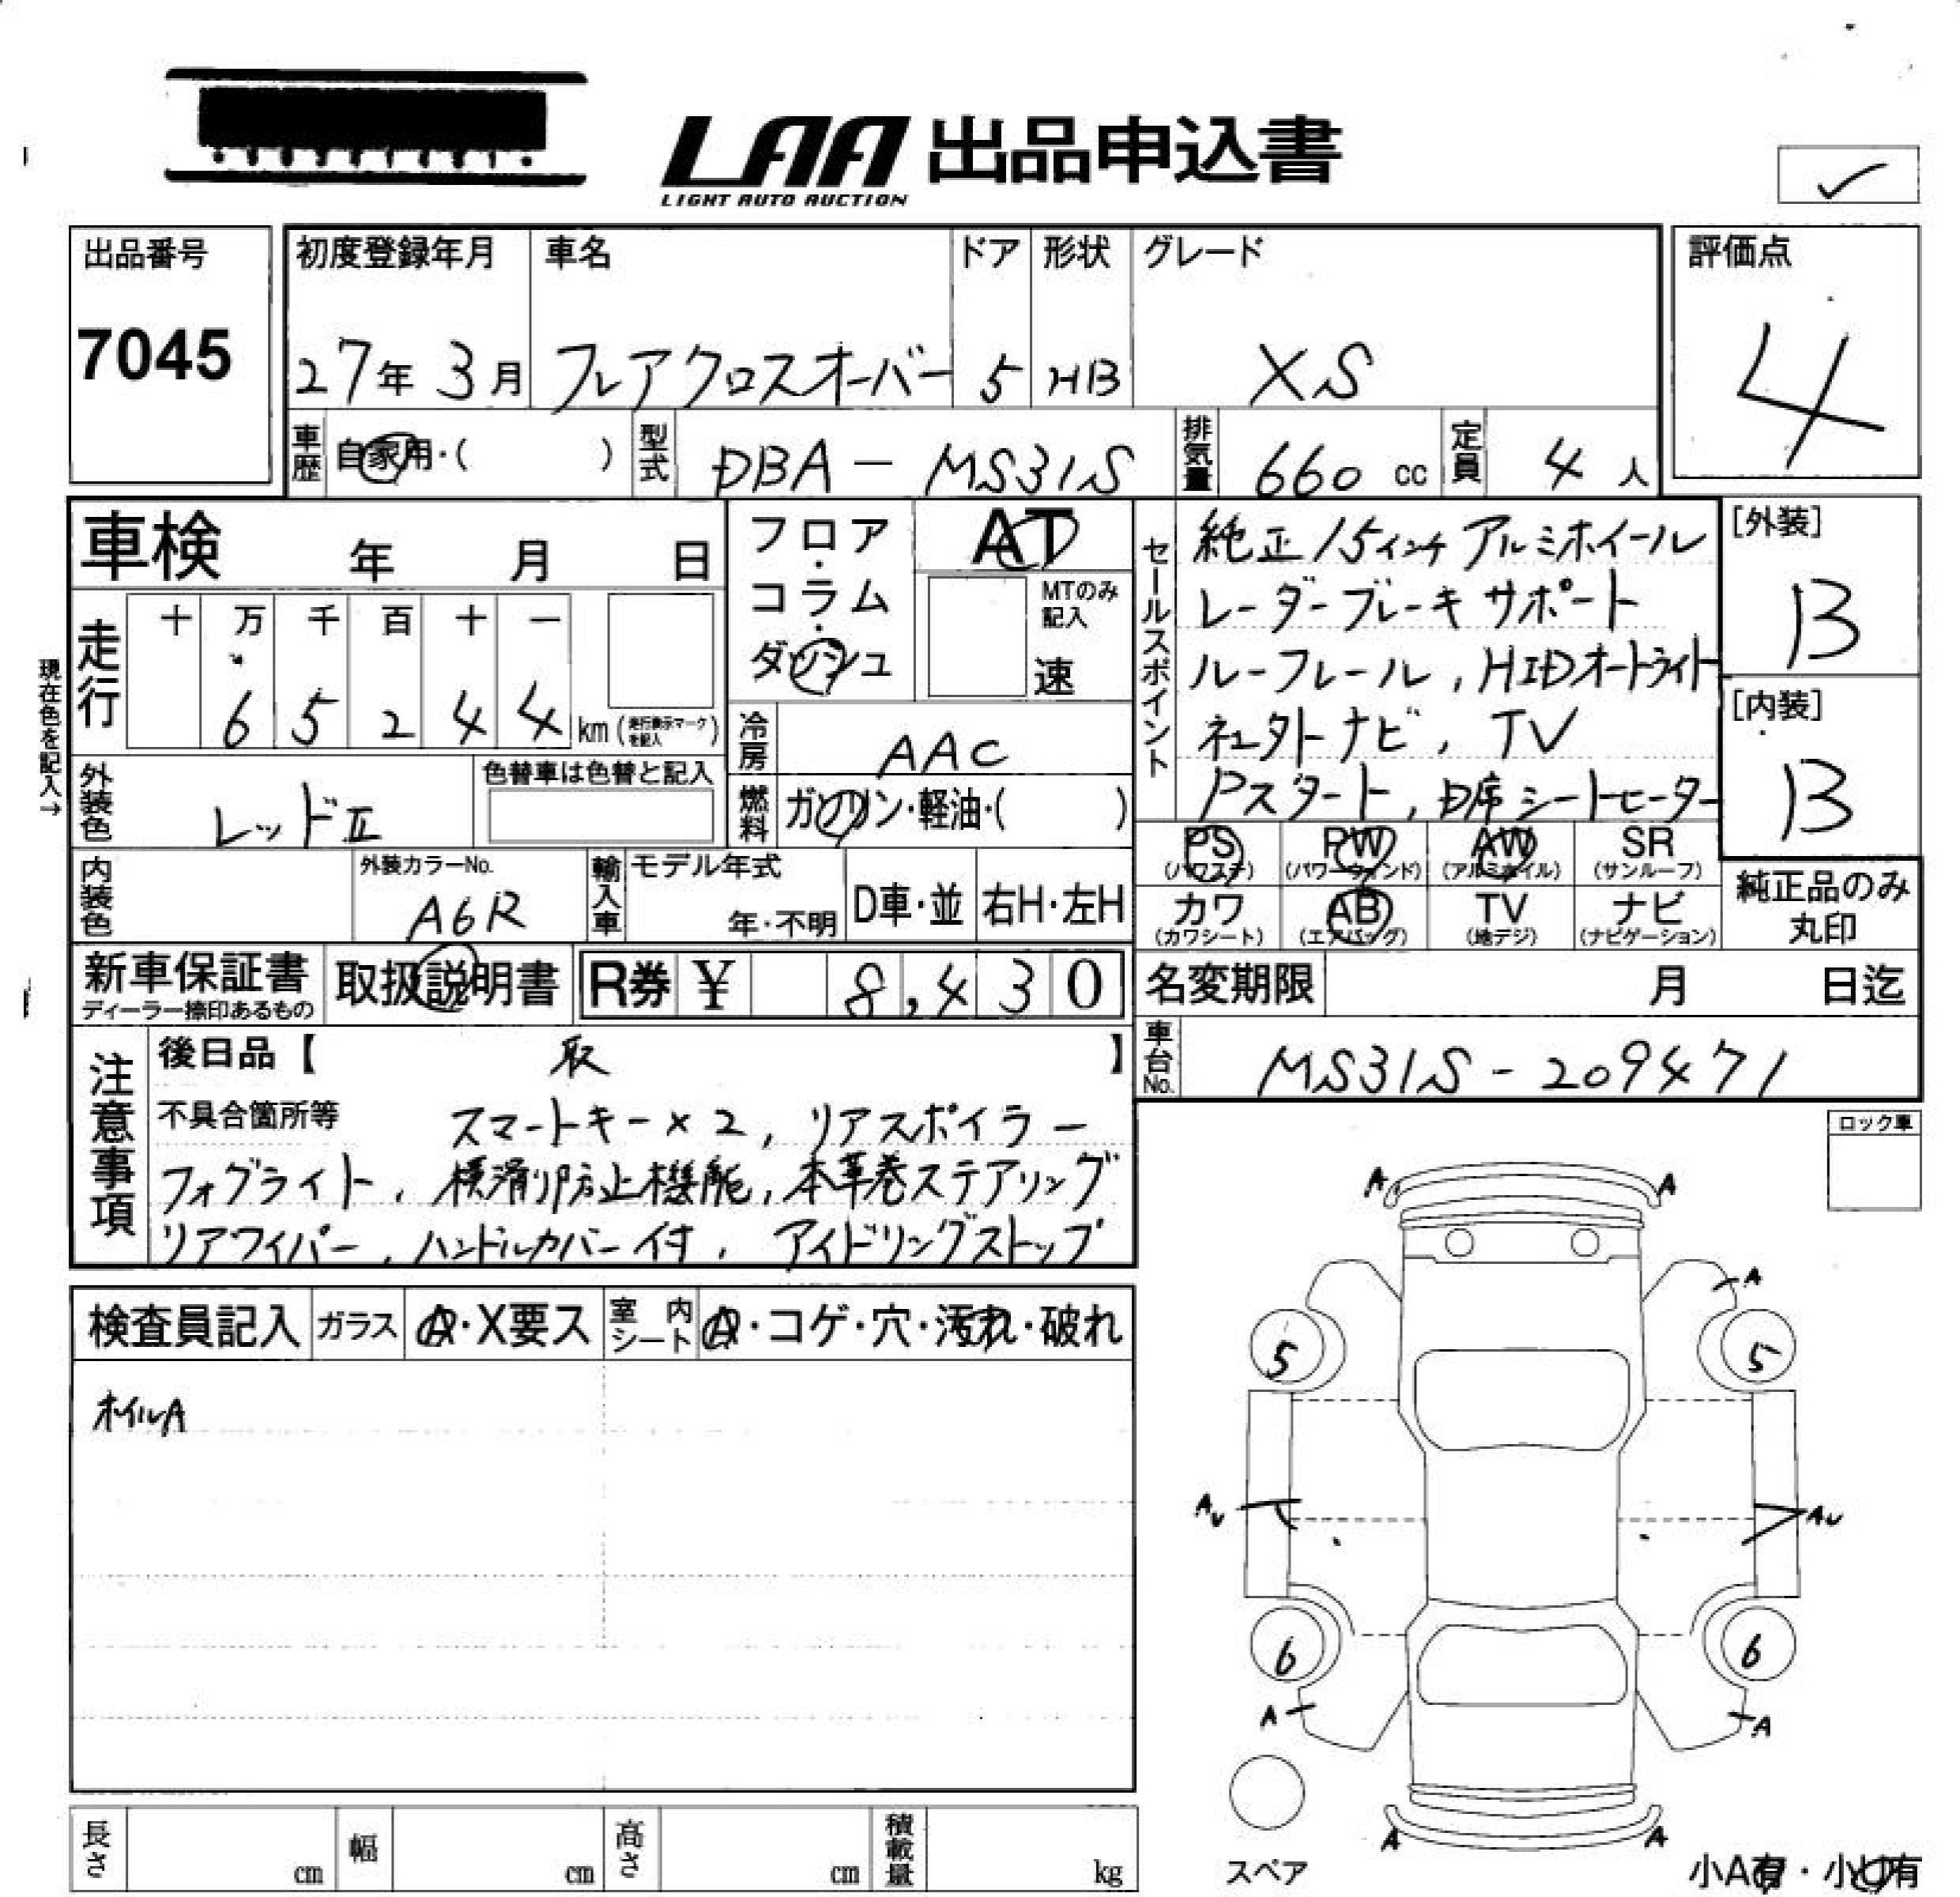 LAA 出品申込書
LIGHT AUTO AUCTION
出品番号
7045
初度登録年月 車名 ドア 形状 グレード
27年 3月 フレアクロスオーバー 5 HB XS
評価点
4
車歴 自家用・( ) 型式 DBA-MS31S 排気量 660 cc 定員 4 人
車検 年 月 日
フロア・コラム・ダッシュ
AT
MTのみ記入
速
走行 十 万 千 百 十 一
6 5 2 4 4 km (走行表示マークを記入)
現在色を記入→
冷房 AAC
外装色 レッドII
色替車は色替と記入
燃料 ガソリン・軽油・( )
内装色
外装カラーNo.
A6R
輸入車 モデル年式
年・不明 D車・並 右H・左H
新車保証書
ディーラー捺印あるもの
取扱説明書
R券 ¥ 8,430
セールスポイント
純正15インチアルミホイール
レーダーブレーキサポート
ルーフレール,HIDオートライト
ネェクトナビ,TV
Pスタート,D席シートヒーター
[外装]
B
[内装]
B
PS PW AW SR
(パワステ) (パワーウィンド) (アルミホイル) (サンルーフ)
カワ AB TV ナビ
(カワシート) (エアバッグ) (地デジ) (ナビゲーション)
純正品のみ
丸印
名変期限 月 日迄
車台No. MS31S-209471
注意事項
後日品【 取 】
不具合箇所等 スマートキー×2,リアスポイラー
フォグライト,横滑り防止機能,本革巻ステアリング
リアワイパー,ハンドルカバー付,アイドリングストップ
検査員記入 ガラス A・X要ス 室内シート A・コゲ・穴・汚れ・破れ
ホイルA
ロック車
A A
A
5 5
AU AU
6 6
A A
A A
スペア
小A有・小U有
長さ cm 幅 cm 高さ cm 積載量 kg